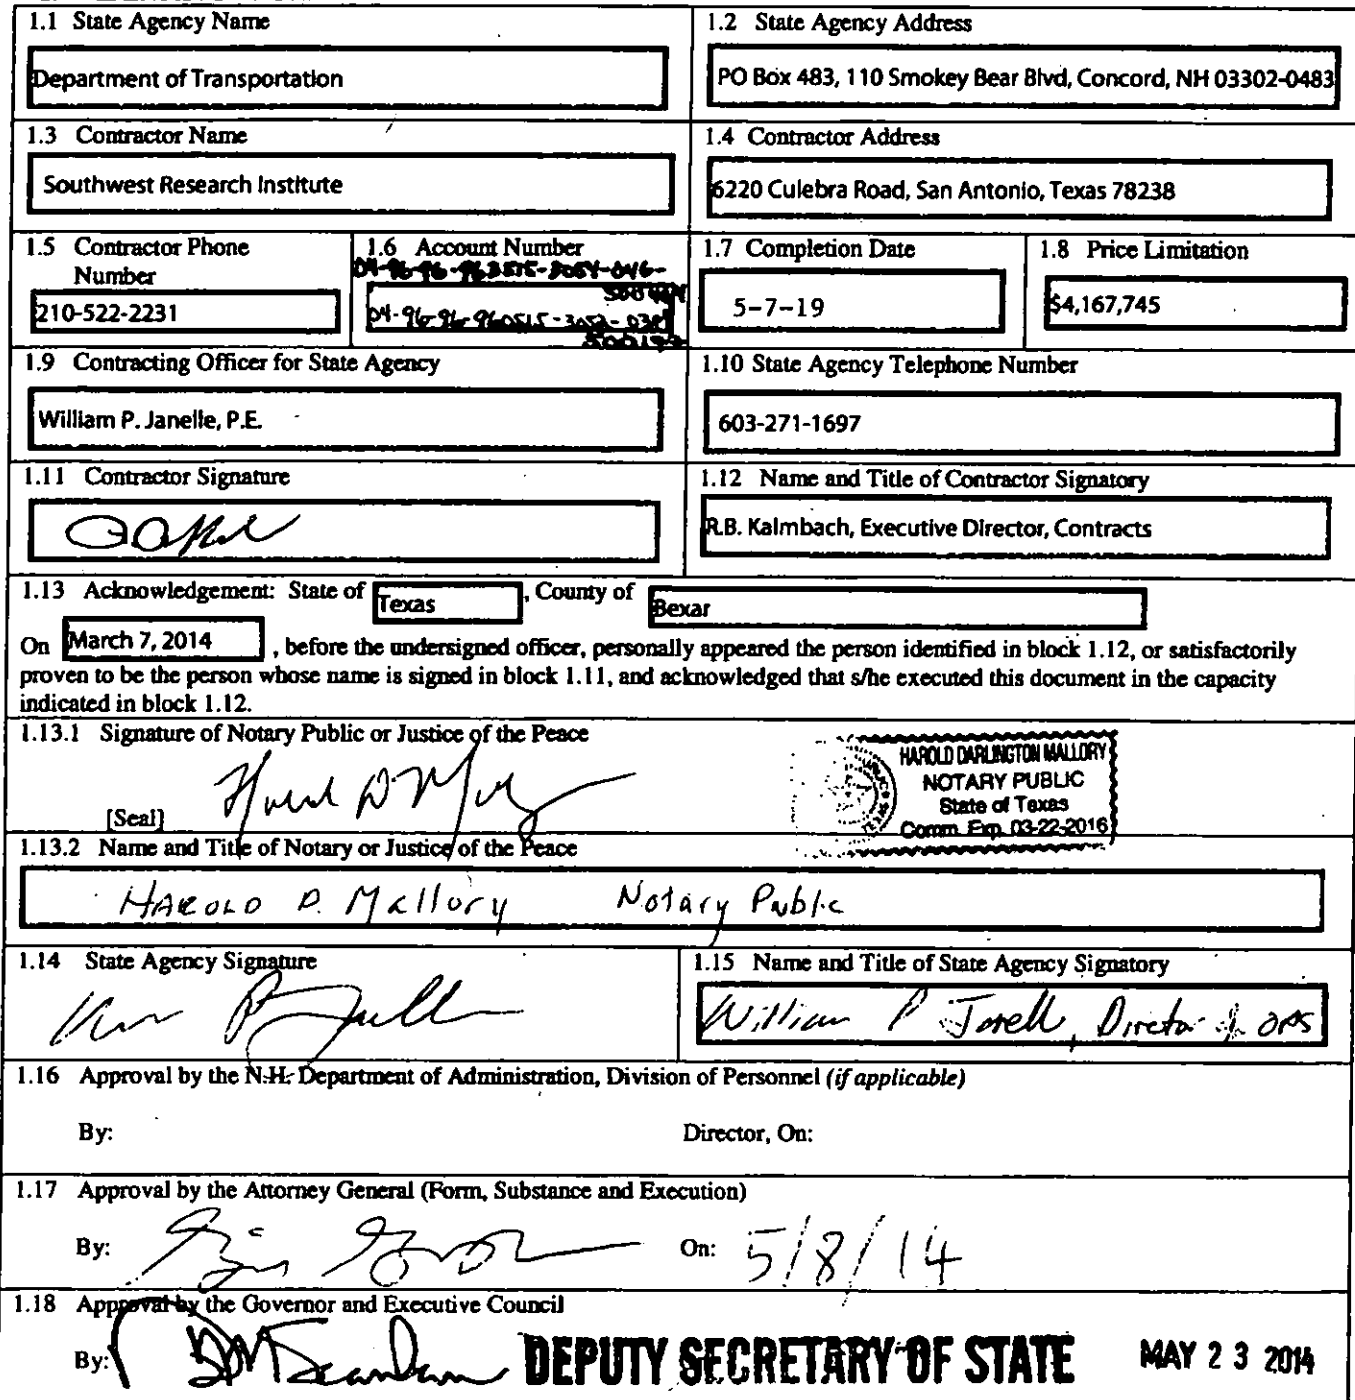 1.1 State Agency Name
Department of Transportation
1.2 State Agency Address
PO Box 483, 110 Smokey Bear Blvd, Concord, NH 03302-0483
1.3 Contractor Name
Southwest Research Institute
1.4 Contractor Address
6220 Culebra Road, San Antonio, Texas 78238
1.5 Contractor Phone
Number
210-522-2231
1.6 Account Number
1.7 Completion Date
5-7-19
1.8 Price Limitation
$4,167,745
1.9 Contracting Officer for State Agency
William P. Janelle, P.E.
1.10 State Agency Telephone Number
603-271-1697
1.11 Contractor Signature
1.12 Name and Title of Contractor Signatory
R.B. Kalmbach, Executive Director, Contracts
1.13 Acknowledgement: State of Texas, County of Bexar
On March 7, 2014, before the undersigned officer, personally appeared the person identified in block 1.12, or satisfactorily
proven to be the person whose name is signed in block 1.11, and acknowledged that s/he executed this document in the capacity
indicated in block 1.12.
1.13.1 Signature of Notary Public or Justice of the Peace
[Seal]
HAROLD DARLINGTON MALLORY
NOTARY PUBLIC
State of Texas
Comm. Exp. 03-22-2016
1.13.2 Name and Title of Notary or Justice of the Peace
HAROLD D. Mallory Notary Public
1.14 State Agency Signature
1.15 Name and Title of State Agency Signatory
William P
1.16 Approval by the N.H. Department of Administration, Division of Personnel (if applicable)
By: Director, On:
1.17 Approval by the Attorney General (Form, Substance and Execution)
By: On: 5/8/14
1.18 Approval by the Governor and Executive Council
By: DEPUTY SECRETARY OF STATE MAY 23 2014